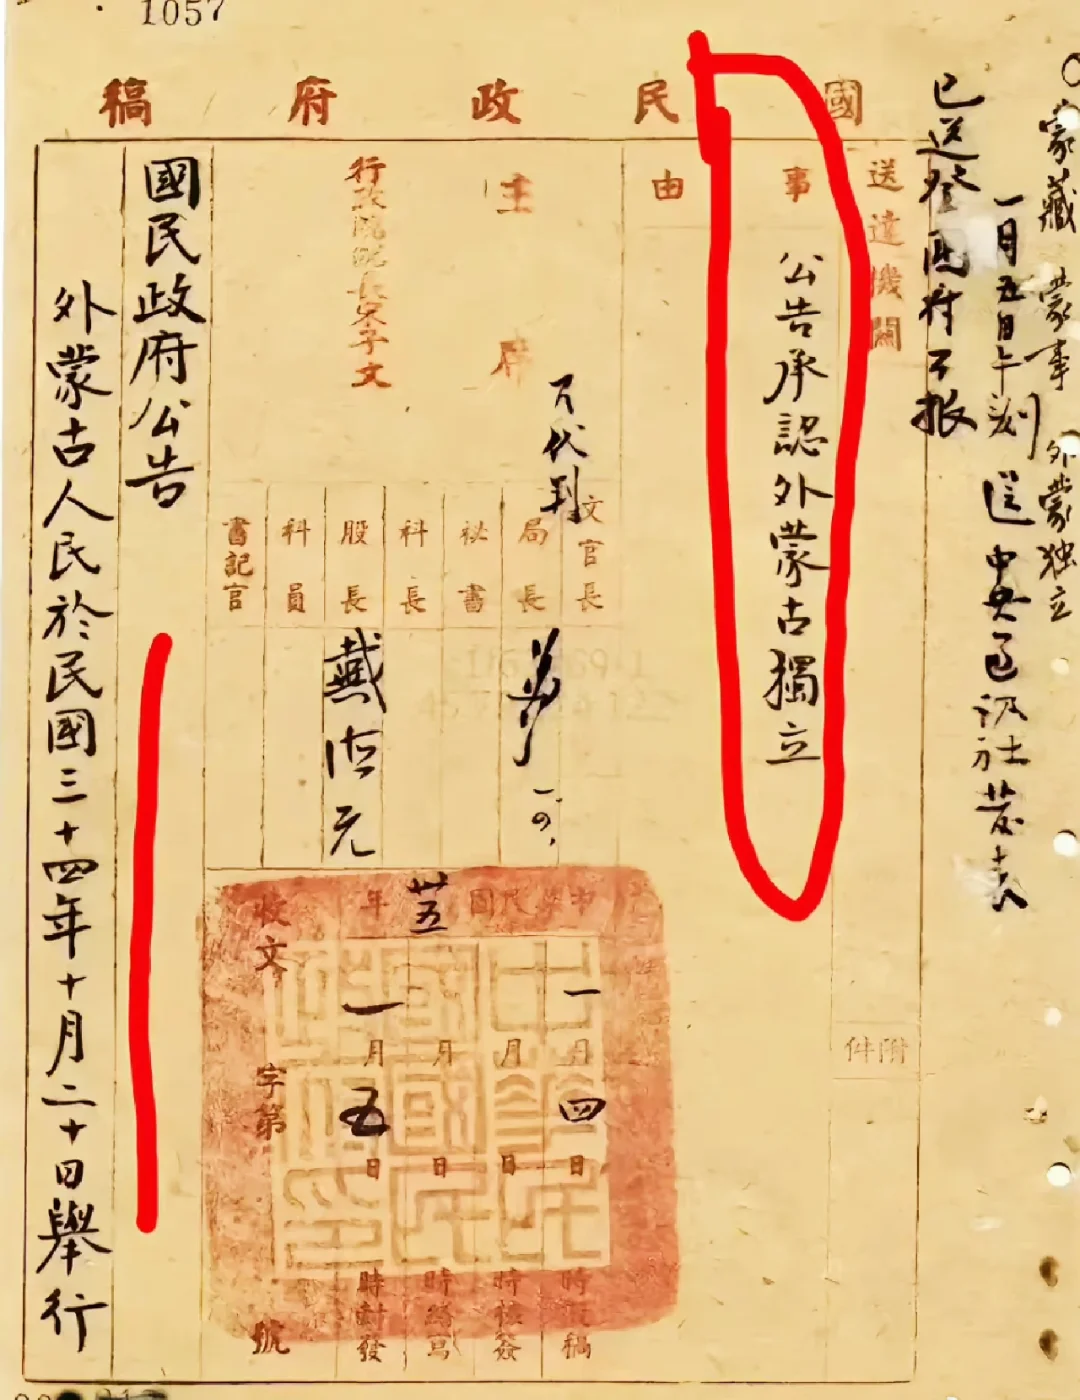 1057
蒙藏 蒙事 外蒙独立
一月五日午刻 送中央通訊社發表
已送登國府公報
國民政府稿
送達機關
附件
事由
公告承認外蒙古獨立
主席
行政院院長宋子文
文官長
局長
祕書
科長
股長
科員
書記官
代
戴
元
中華民國卅五年
一月四日
時擬稿
月 日
時核簽
月 日
時繕寫
一月五日
時封發
收文 字第 號
中華民國國民政府印
國民政府公告
外蒙古人民於民國三十四年十月二十日舉行